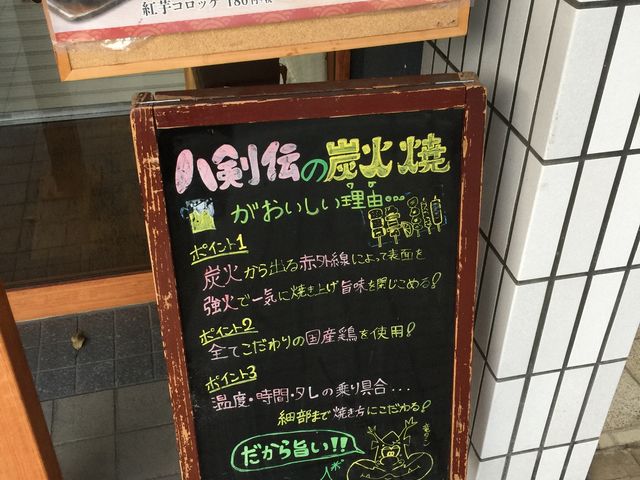 紅芋コロッケ 180円
八剣伝の炭火焼
がおいしい理由…
ポイント1
炭火から出る赤外線によって表面を
強火で一気に焼き上げ旨味を閉じこめる!
ポイント2
全てこだわりの国産鶏を使用!
ポイント3
温度・時間・タレの乗り具合...
細部まで焼き方にこだわる!
だから旨い!!